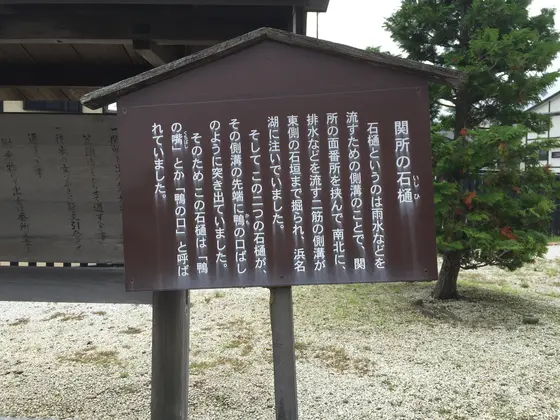 関所の石樋
いしひ
石樋というのは雨水などを
流すための側溝のことで、関
所の面番所を挟んで、南北に、
排水などを流す二筋の側溝が
東側の石垣まで掘られ、浜名
湖に注いでいました。
そして、この二つの石樋が、
その側溝の先端に鴨の口ばし
かも
のように突き出ていました。
そのため、この石樋は「鴨
の嘴」とか「鴨の口」と呼ば
くちばし
れていました。